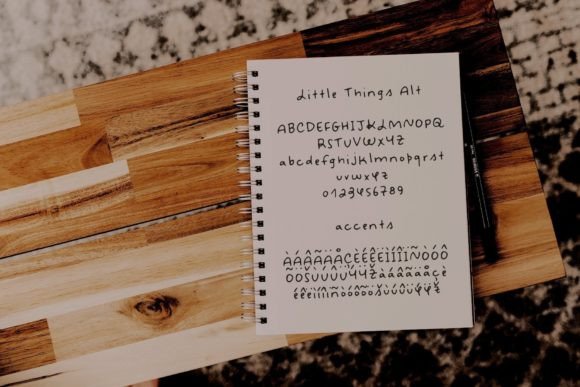 Little Things Alt
ABCDEFGHIJKLMNOPQ
RSTUVWXYZ
abcdefghijklmnopqrst
uvwxyz
0123456789
accents
ÀÁÂÃÄÅÇÈÉÊËÌÍÎÏÑÒÓÔ
ÕÖŠÙÚÛÜÝŸŽàáâãäåçè
éêëìíîïñòóôõöšùúûüýÿž